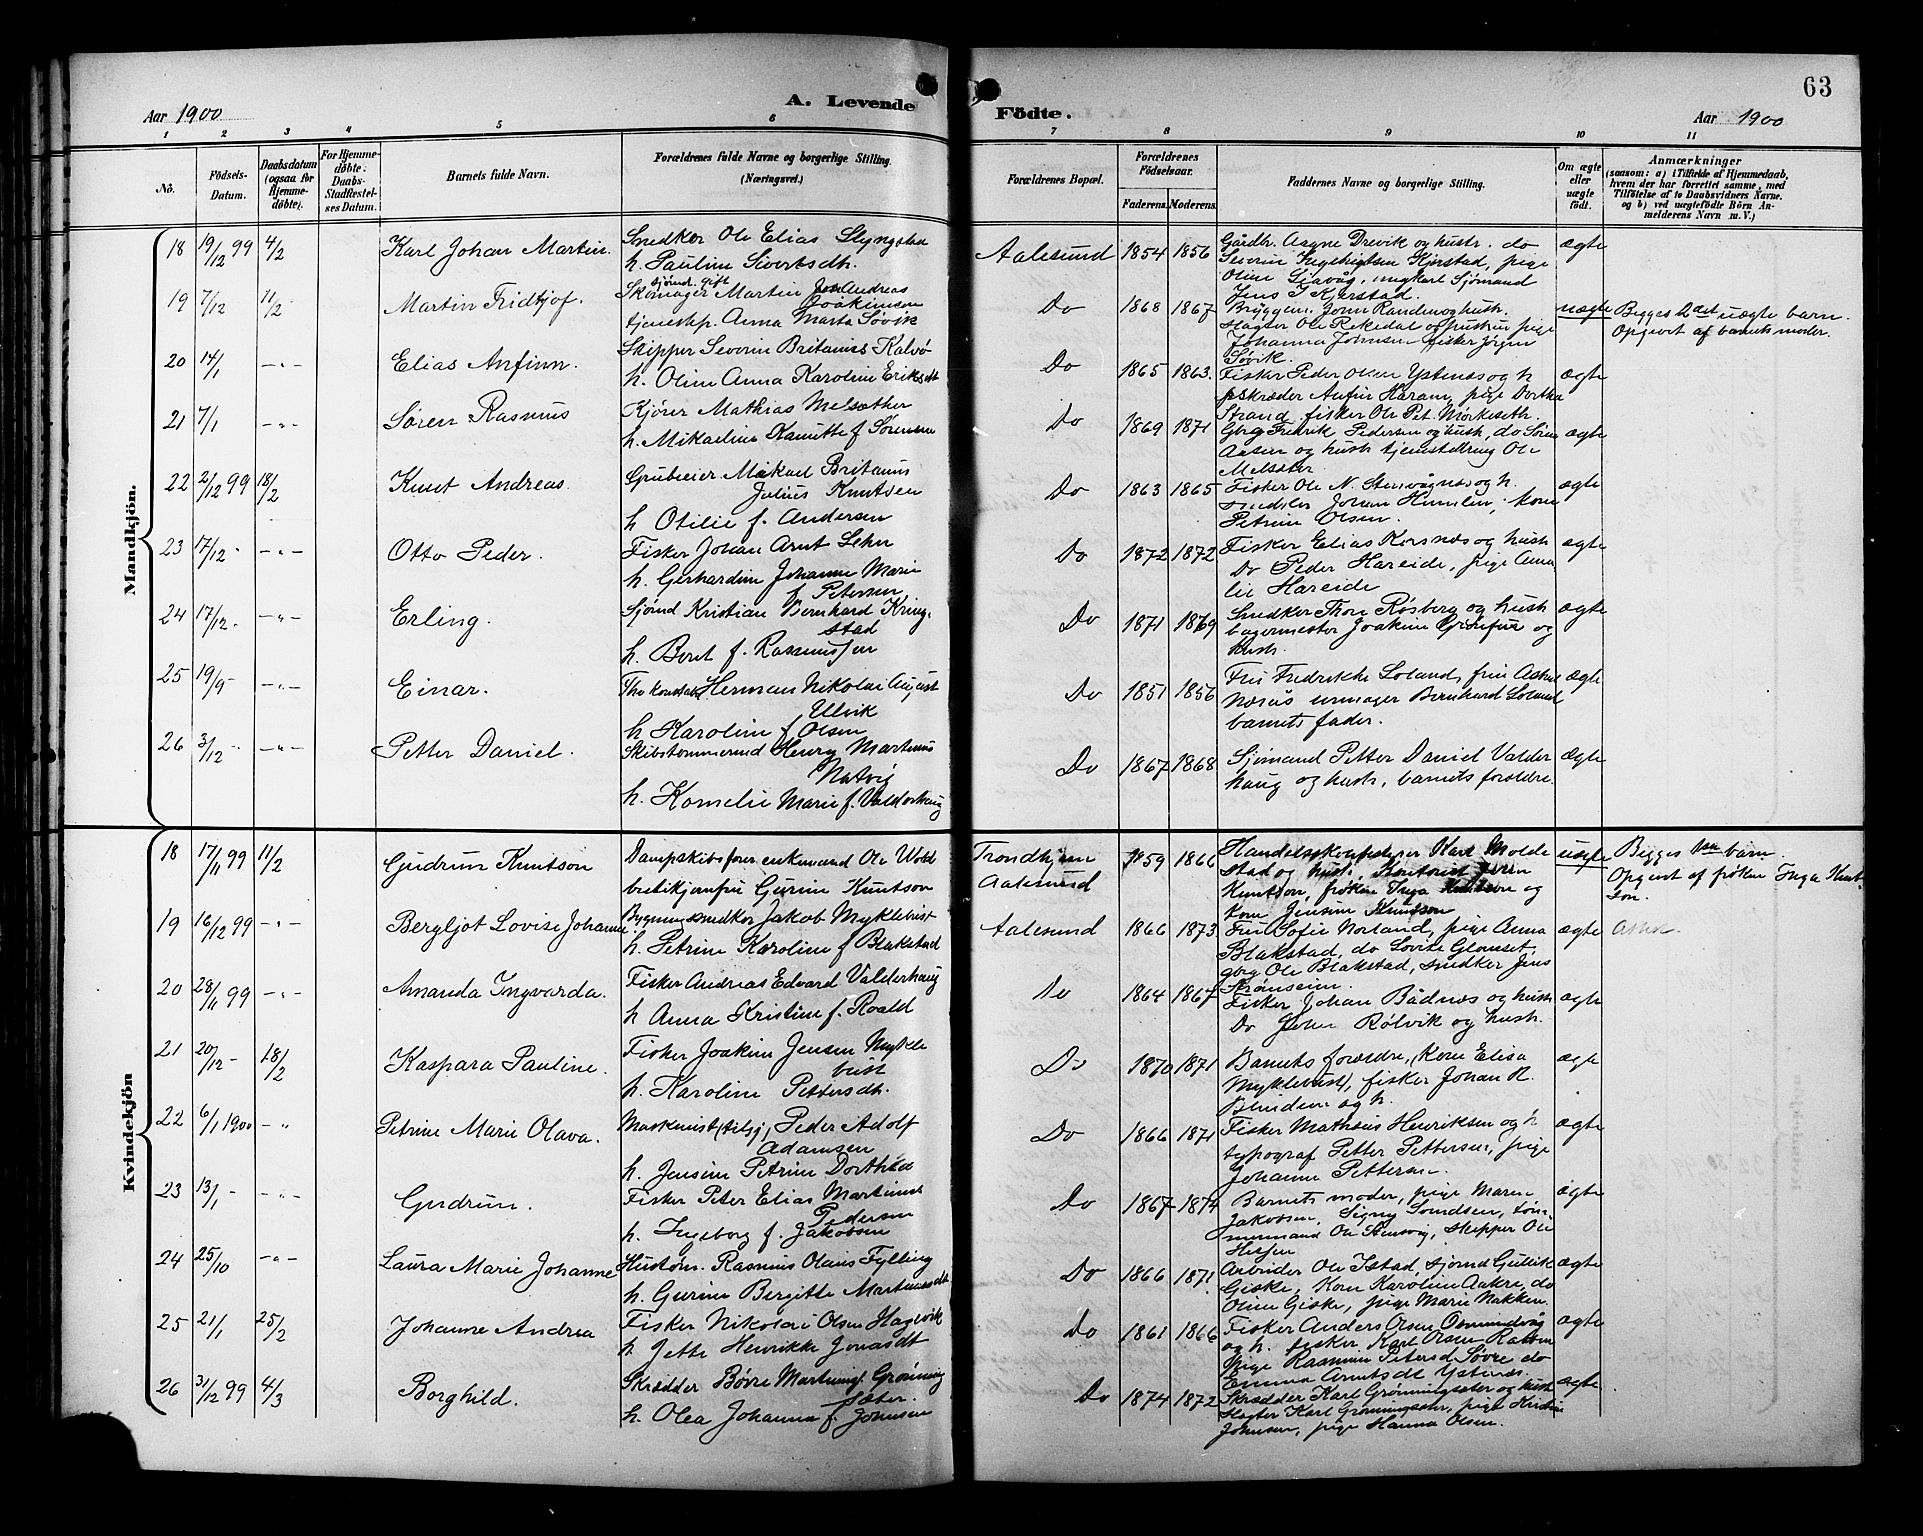 63
Aar 1900
A. Levende
Födte.
Aar 1900
1 2 3 4 5 6 7 8 9 10 11
No.
Födsels-Datum.
Daabsdatum (ogsaa for Hjemme-döbte).
For Hjemme-döbte: Daabs-Stadfæstelses Datum.
Barnets fulde Navn.
Forældrenes fulde Navne og borgerlige Stilling. (Næringsvei.)
Forældrenes Bopæl.
Forældrenes Födselsaar.
Faderens. Moderens.
Faddernes Navne og borgerlige Stilling.
Om ægte eller uægte födt.
Anmærkninger
(saasom: a) i Tilfælde af Hjemmedaab, hvem der har forrettet samme, med Tilföielse af to Daabsvidners Navne, og b) ved uægtefödte Börn Anmelderens Navn m. V.)
Mandkjön.
18 19/12 99 4/2 Karl Johan Martin. Snedker Ole Elias Slyngstad
h. Pauline Sivertsdh.
Aalesund 1854 1856 Gårdbr. Aagne Drevik og hustr. do
Severin Ingebrigtsen Kjerstad, pige
Oline Giævåg, ungkarl Sjømand
Jens I Kjerstad.
ægte
19 7/12 11/2 Martin Fridtjof. sjømd. gift
Skomager Martin Andreas
Joakimsen
tjenestp. Anna Marta Søvik
Do 1868 1867 Bryggem. John Randen og hust.
slagter Ole Rekedal og hustru pige
Johanna Johnsen fisker Jørgen
Søvik.
uægte Begges 2det uægte barn.
Opgivet af barnets moder.
20 14/1 -"- Elias Anfinn. Skipper Severin Britanius Kalvø
h. Oline Anna Karoline Eriksdt
Do 1865 1863. Fisker Peder Olsen Ystenæs og h
skræder Anfin Haram, pige Dortha
Strand, fisker Ole Pet. Mørkeseth.
ægte
21 7/1 -"- Søren Rasmus Kjører Mathias Melsæther
h. Mikaeline Kanutte f. Sørensen
Do 1869 1871 Gbrg Fredrik Pedersen og hust, do Søren
Aasen og hustr tjenestedreng Ole
Melsæter.
ægte
22 2/12 99 18/2 Knut Andreas. Grubeeier Mikael Britanus
Julius Knutsen
h Otilie f. Andersen
Do 1863 1865 Fisker Ole N. Stensvågnæs og h.
Johan Humlen, kone
Petrine Olsen.
ægte
23 17/12 - -"- Otto Peder. Fisker Johan Arnt Lehn
h. Gerhardine Johanne Marie
f Petersen
Do 1872 1872 Fisker Elias Korsnæs og hust
Do Peder Hareide, pige Anna
lie Hareide
ægte
24 17/12 - -"- Erling. Sjømd Kristian Bernhard Kring-
stad
h. Berit f. Rasmussen
Do 1871 1869 Snedker Thore Røsberg og hust
bagermester Joakim og
hust.
ægte
25 19/9 - -"- Einar. Herman Nikolai August
Ulvik
h Karoline f. Olsen
Do 1851 1856 Fru Fredrikke Loland, frue
Næsås urmager Bernhard Loland
barnets fader.
ægte
26 3/12 - -"- Petter Daniel. Skibstømmermd Henry Martinus
Natvig
h. Kornelie Marie f. Valderhaug
Do 1867 1868 Sjømand Petter Daniel Valder
haug og hust, barnets forældre.
ægte
Kvindekjön
18 17/11 99 11/2 Gudrun Knutson Dampskibsfører enkemand Ole Wold
Gurine Knutson
Trondhjem
Aalesund
1859 1866 Karl Molde
stad og hust, Kontorist
Knutson, frøken Inga Knutson og
kone Jensine Knutson
uægte Begges barn
Opgivet af frøken Inga Knut-
son.
19 16/12 99 -"- Bergljot Lovise Johanne Bygningssnedker Jakob Myklebust
h. Petrine Karoline f Blakstad
Aalesund 1866 1873 Fru Sofie Norland, pige Anna
Blakstad, do Lovise Glomset,
gbrg Ole Blakstad, snedker Jens
Strømseim.
ægte
20 28/11 99 -"- Amanda Ingvarda. Fisker Andreas Edvard Valderhaug
h Anna Kristine f. Roald
Do 1864 1867 Fisker Johan Bådnæs og hust
Do Johan Rølvik og hust.
ægte
21 20/12 - 18/2 Kaspara Pauline. Fisker Joakim Jensen Mykle
bust
h. Karoline Pettersdt.
Do 1870 1871 Barnets forældre, (Kone Elisa
Myklebust), fisker Johan R.
Blinden og h.
ægte
22 6/1 1900 -" Petrine Marie Olava. Maskinist Peder Adolf
Adamsen
h. Jensine Petrine Dorthea
Do 1866 1871 Fisker Mathæus Henriksen og h
typograf Petter Pettersen, pige
Johanne Pettersen.
ægte
23 13/1 - -"- Gudrun. Fisker Peter Elias Martinus
Pedersen
h. Ingeborg f. Jakobsen
Do 1867 1874 Barnets moder, pige Maren
Jakobsen, Signy Sundsen, tøm-
mermand Ole Stensvig, skipper Ole
Hessen
ægte
24 25/10 -"- Laura Marie Johanne Hustøm. Rasmus Olaus Fylling
h. Gurine Bergitte Martinusdt
Do 1866 1871. Arbeider Ole Istad sjømd Gullik
Giske, Kone Karoline Aakre, do
Oline Giske, pige Marie Nakken.
ægte
25 21/1 25/2 Johanne Andrea Fisker Nikolai Olsen Hagevik
h Jette Henrikke Jonasdt
Do 1861 1866 Fisker Anders Olsen Osmundvåg
og h. fisker Karl Olsen
pige Rasmine Petersd Søvre do
Emma Arntsdt Ystenæs.
ægte
26 31/12 99 4/3 Borghild. Skrædder Bøvre Martinus Grønning
sæter.
h. Olea Johanna f. Johnsen
Do 1874 1872 Skrædder Karl Grønningsæter og hust
slagter Karl Grønningsæter, pige Kristine
Johnsen, pige Hanna Olsen.
ægte